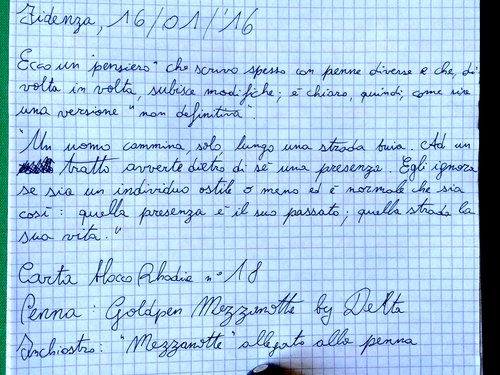 Fidenza, 16/01/'16
Ecco un "pensiero" che scrivo spesso con penne diverse e che, di
volta in volta, subisce modifiche; è chiaro, quindi, come sia
una versione "non definitiva"..
"Un uomo cammina, solo, lungo una strada buia. Ad un
tratto avverte dietro di sé una presenza. Egli ignora
se sia un individuo ostile o meno ed è normale che sia
così: quella presenza è il suo passato; quella strada la
sua vita."
Carta blocco Rhodia n° 18
Penna: Goldpen Mezzanotte by Delta
Inchiostro: "Mezzanotte" allegato alla penna